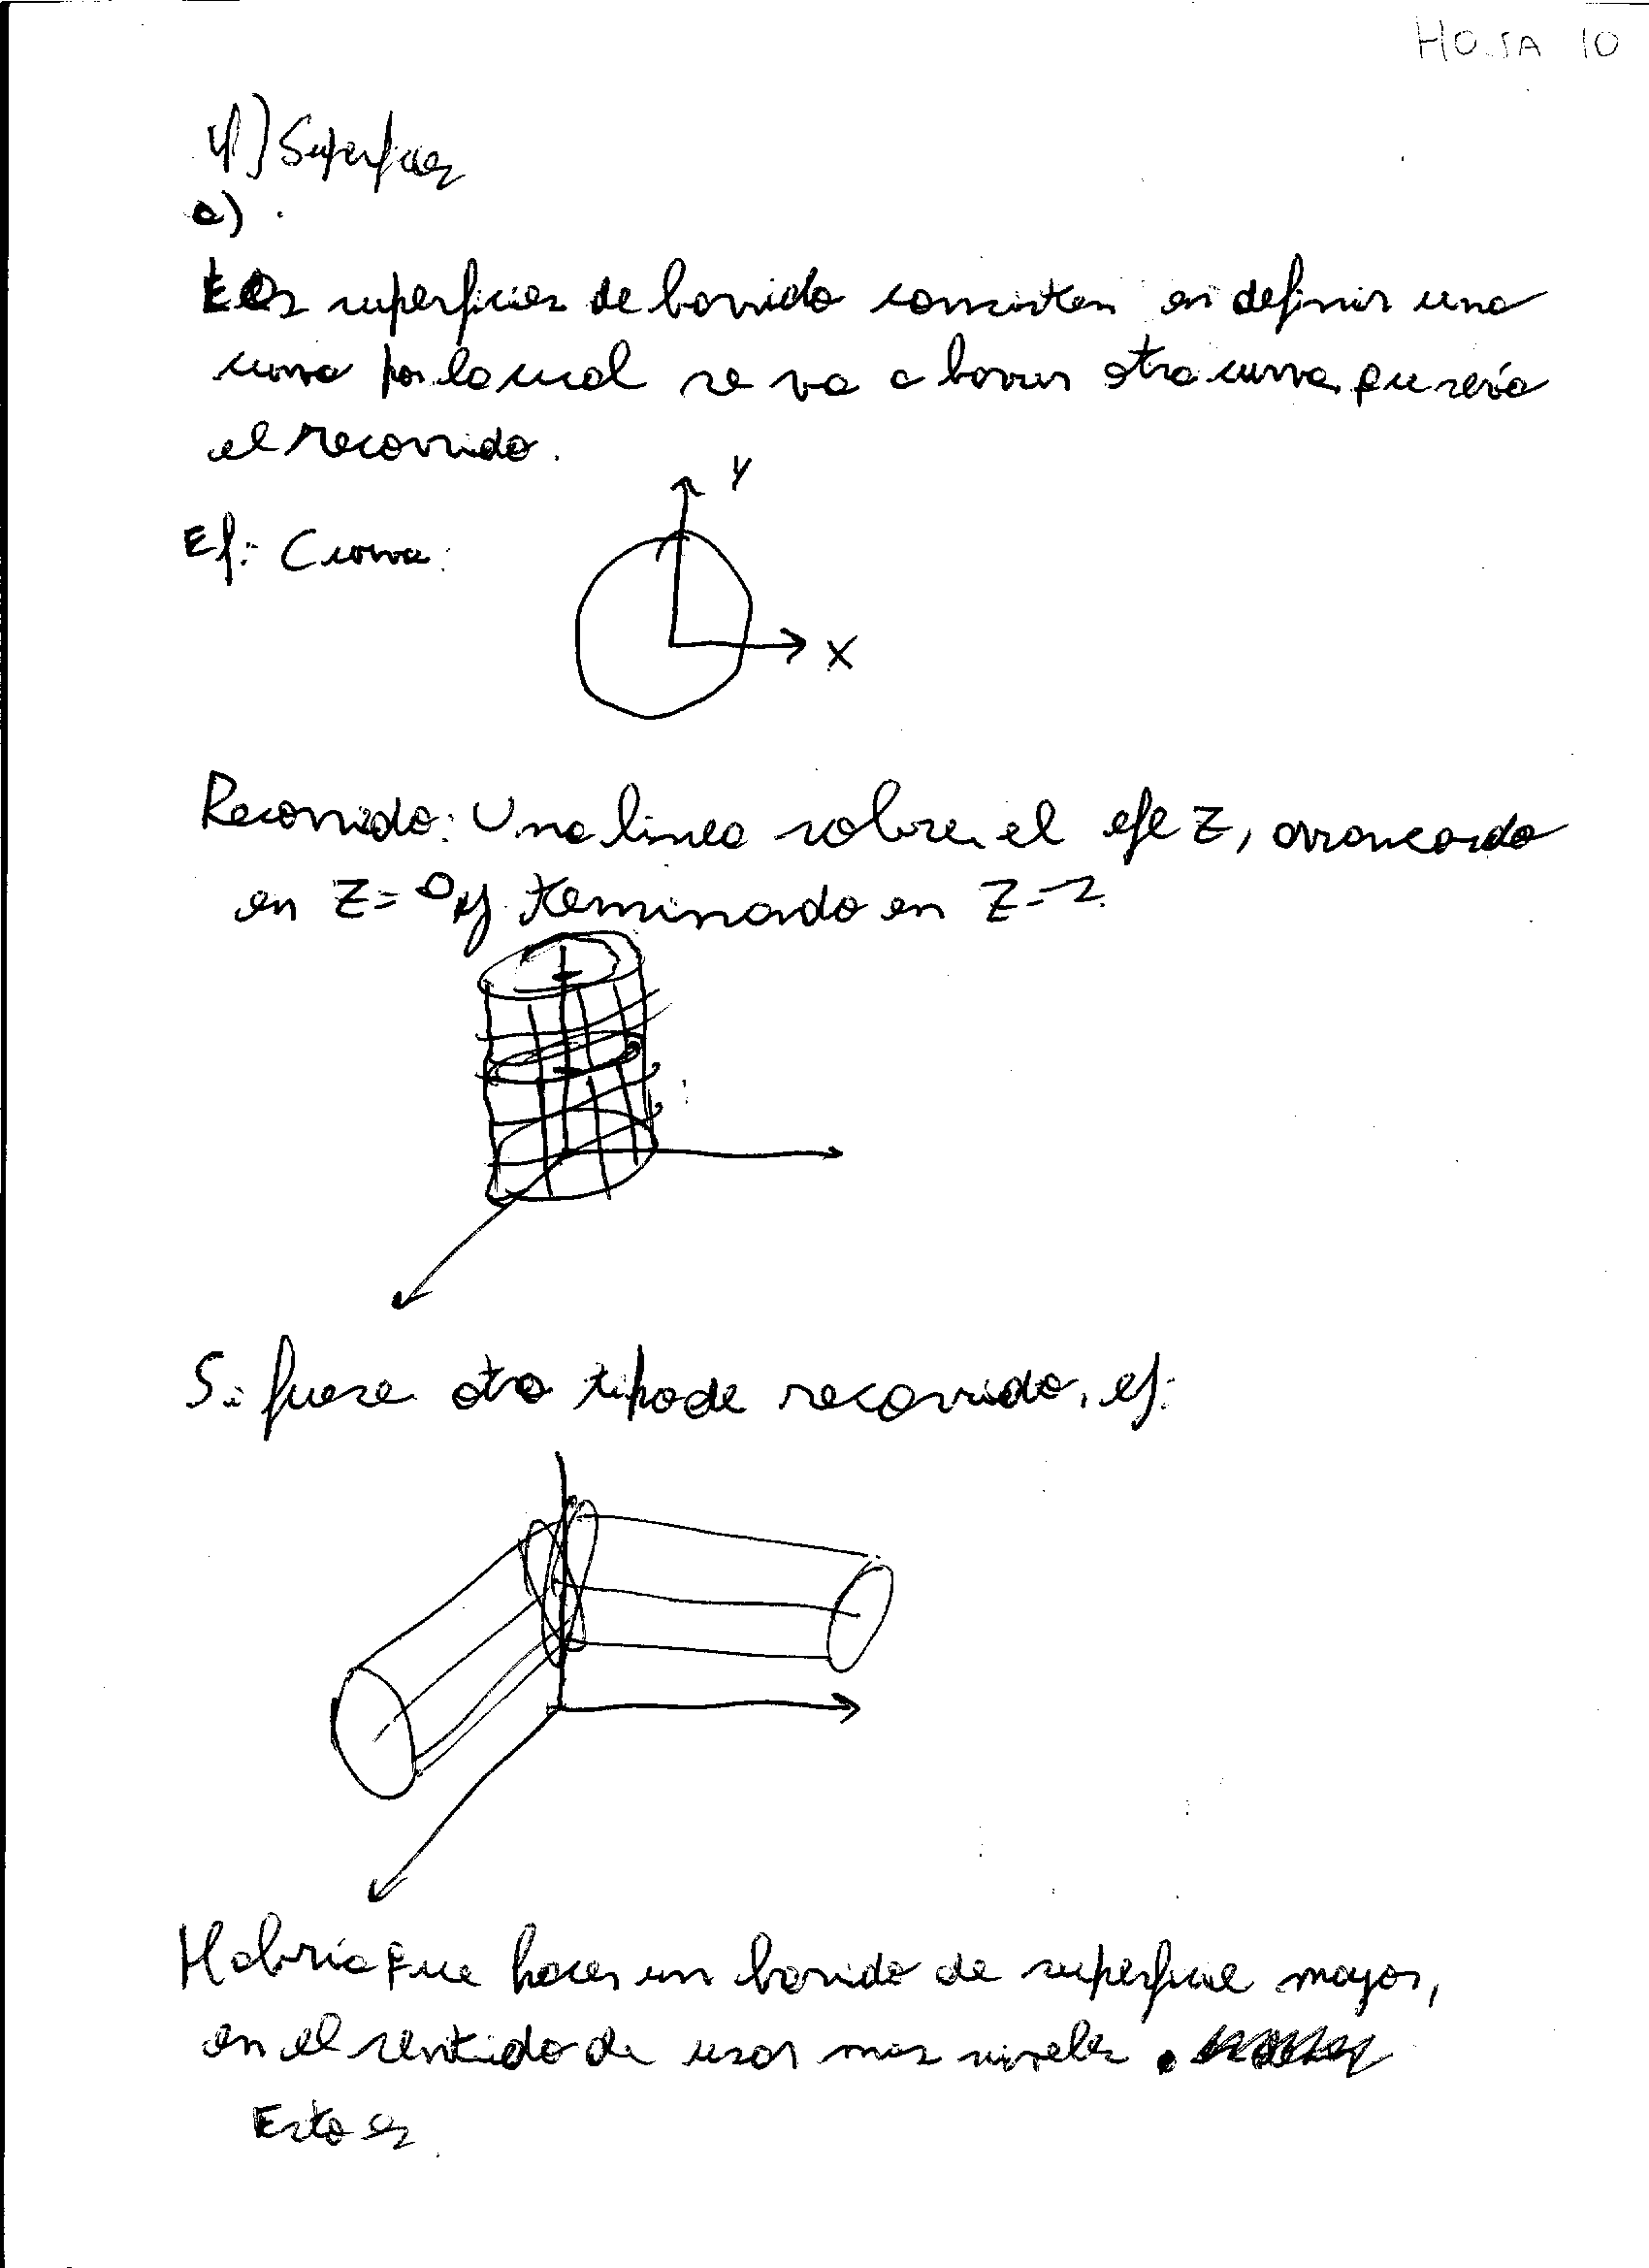 HOJA 10
4) Superficies
a)
Las superficies de barrido consisten en definir una
curva por la cual se va a barrer otra curva, que sería
el recorrido.
Ej: Curva:
Y
X
Recorrido: Una linea sobre el eje Z, arrancando
en Z=0 y terminando en Z=2.
Si fuese otro tipo de recorrido, ej:
Habría que hacer un barrido de superficie mayor,
en el sentido de usar mas niveles.
Esto es